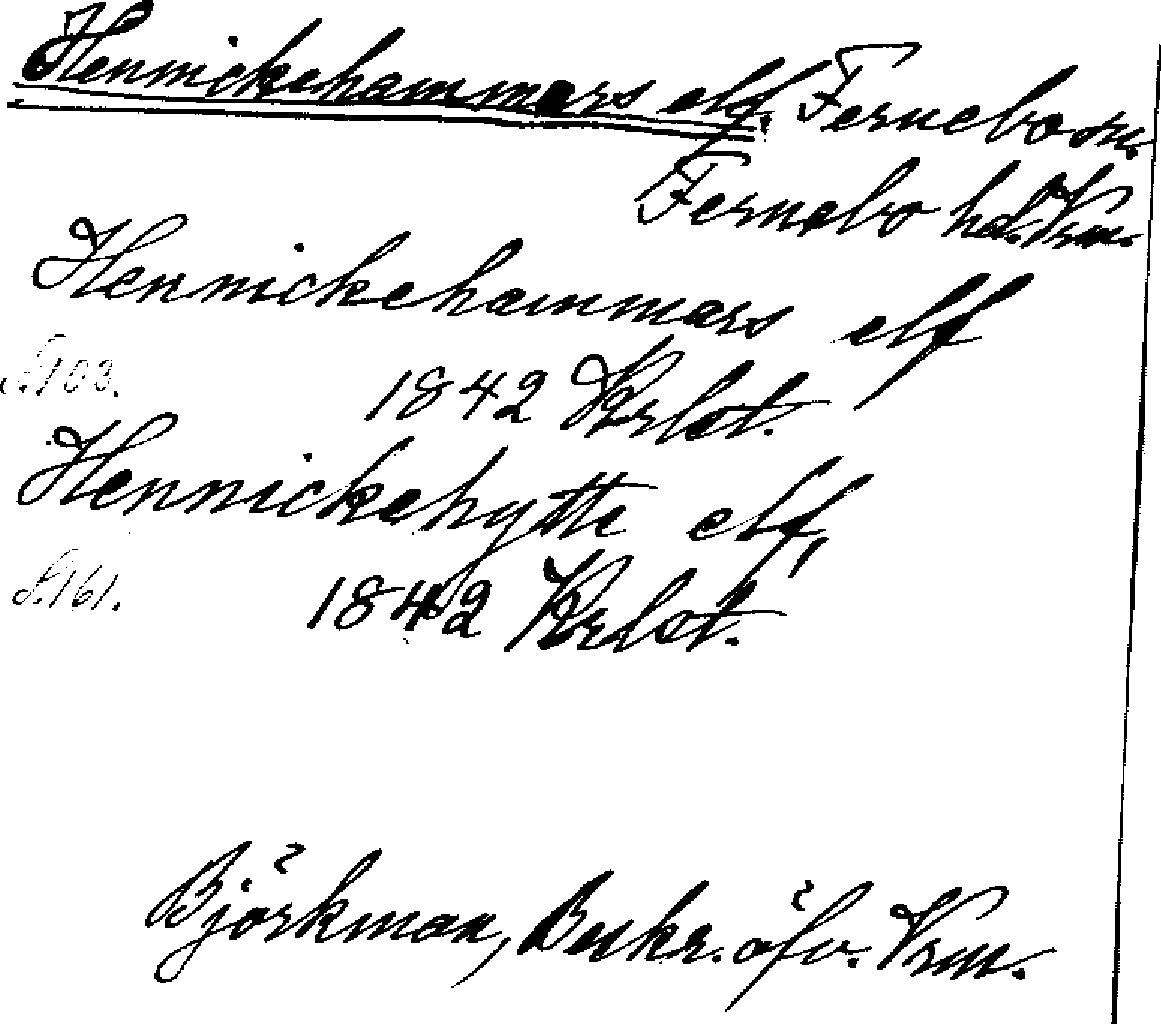 Hennickehammars elf. Fernebo sn.
Fernebo hd. Vrm.
Hennickehammars elf
S. 103. 1842 Krlst.
Hennickehytte elf,
S. 161. 1842 Krlst.
Björkman, Beskr. öfv. Vrm.